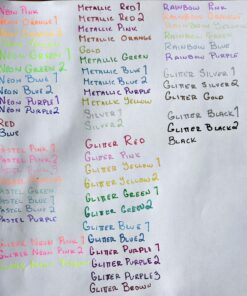 Neon Pink
Neon Orange
Neon Green 1
Neon Green 2
Neon Blue 1
Neon Blue 2
Neon Purple 1
Neon Purple 2
Red
Blue
Pastel Pink 1
Pastel Pink 2
Pastel
Pastel
Pastel Green
Pastel Blue 1
Pastel Blue 2
Pastel Purple
Glitter Neon Pink 1
Glitter Neon Pink 2
Metallic Red 1
Metallic Red 2
Metallic Pink
Metallic Orange
Gold
Metallic Green
Metallic Blue 1
Metallic Blue 2
Metallic Purple
Metallic Yellow
Silver 1
Silver 2
Glitter Red
Glitter Pink
Glitter Yellow 1
Glitter Yellow 2
Glitter Green 1
Glitter Green 2
Glitter Blue 1
Glitter Blue 2
Glitter Purple 1
Glitter Purple 2
Glitter Purple 3
Glitter Brown
Rainbow Pink
Rainbow Purple
Rainbow Orange
Rainbow Green
Rainbow Blue
Rainbow Yellow
Glitter Silver 1
Glitter Silver 2
Glitter Gold
Glitter Black 1
Glitter Black 2
Black